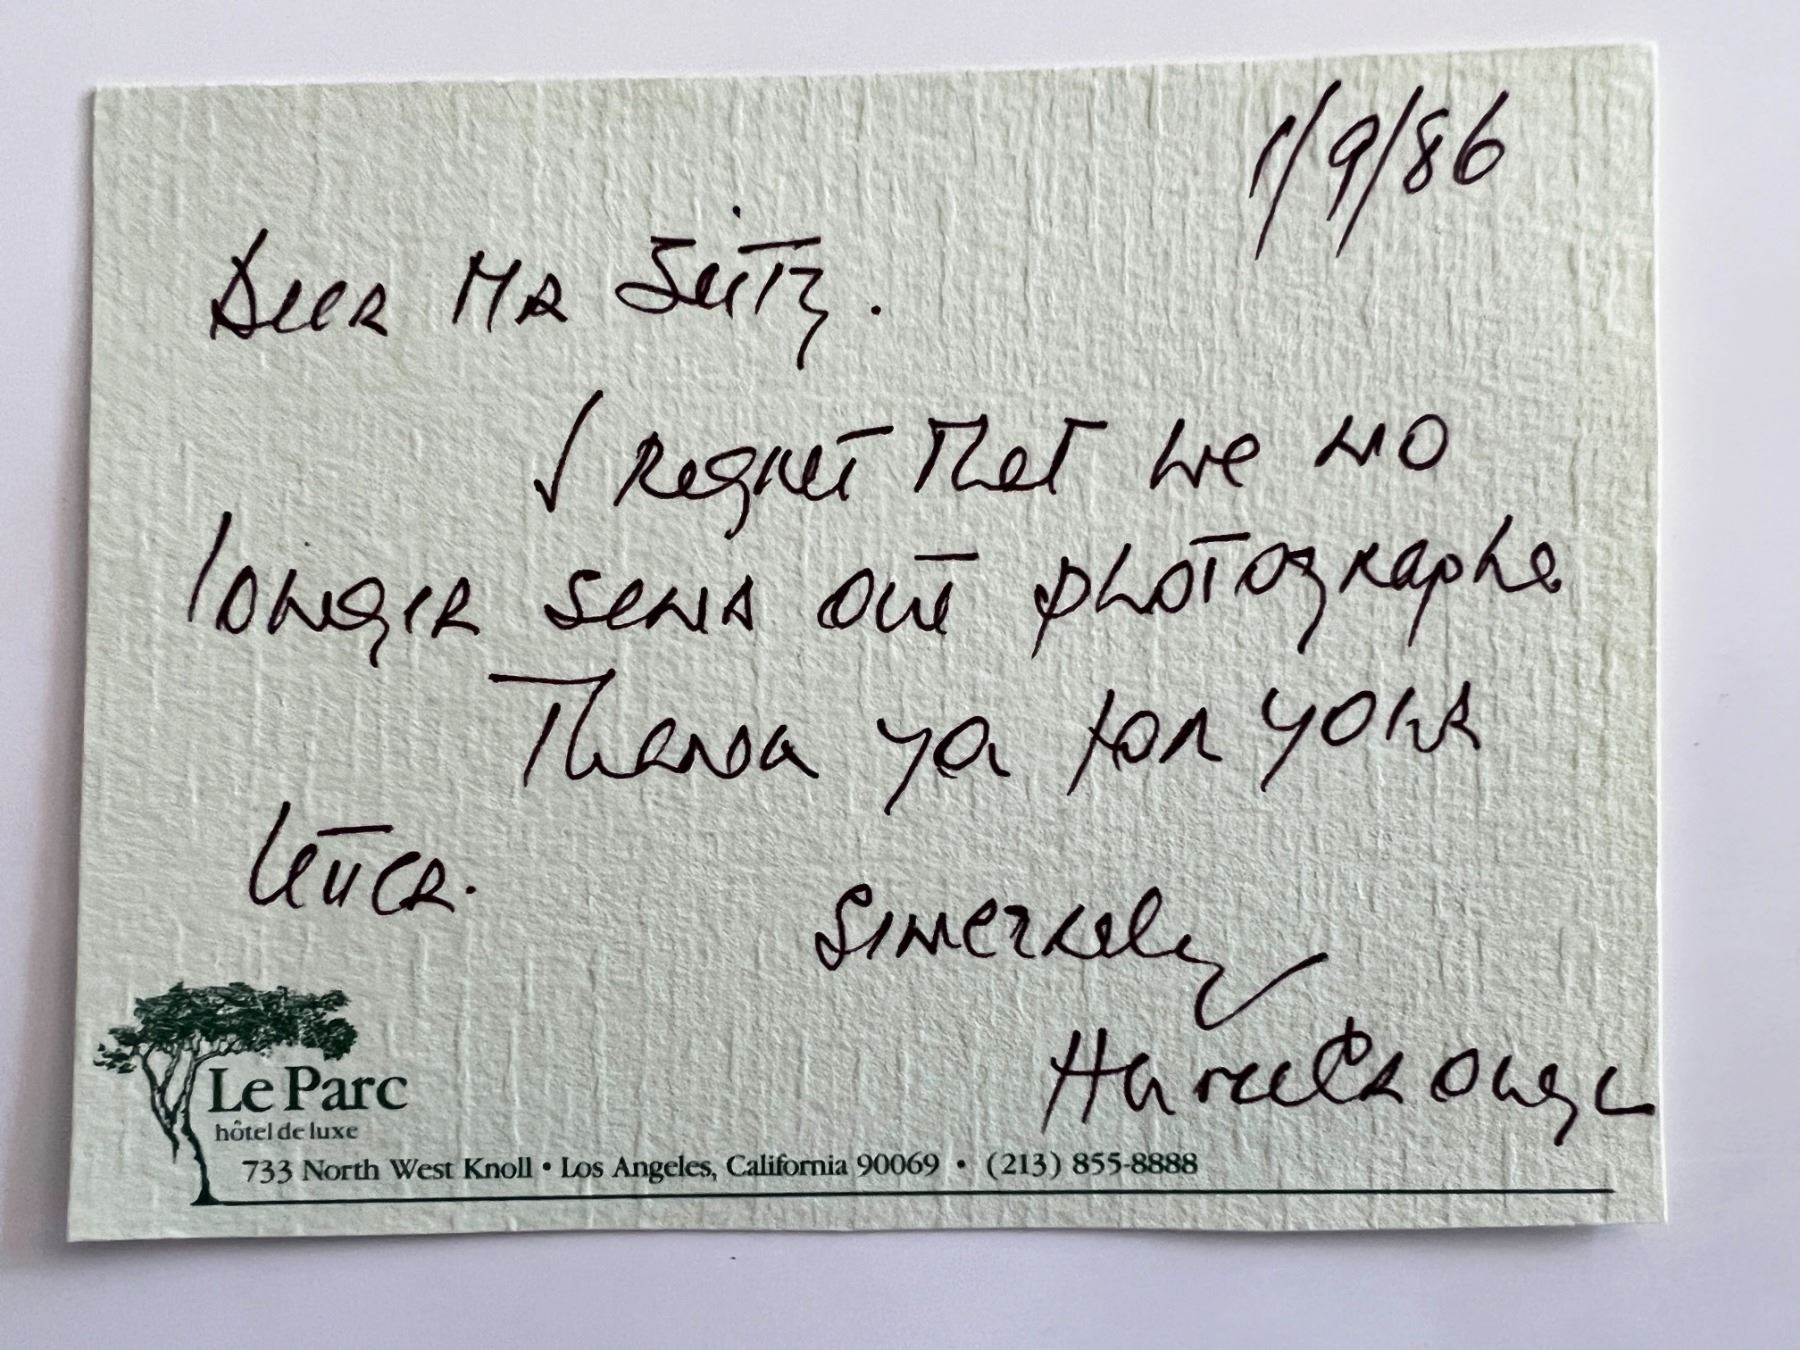 1/9/86
Dear Mr Seitz.
I regret that we no
longer send out photographs
Thank yo for your
letter.
Sincerely
Hume Cronyn
Le Parc
hôtel de luxe
733 North West Knoll • Los Angeles, California 90069 • (213) 855-8888